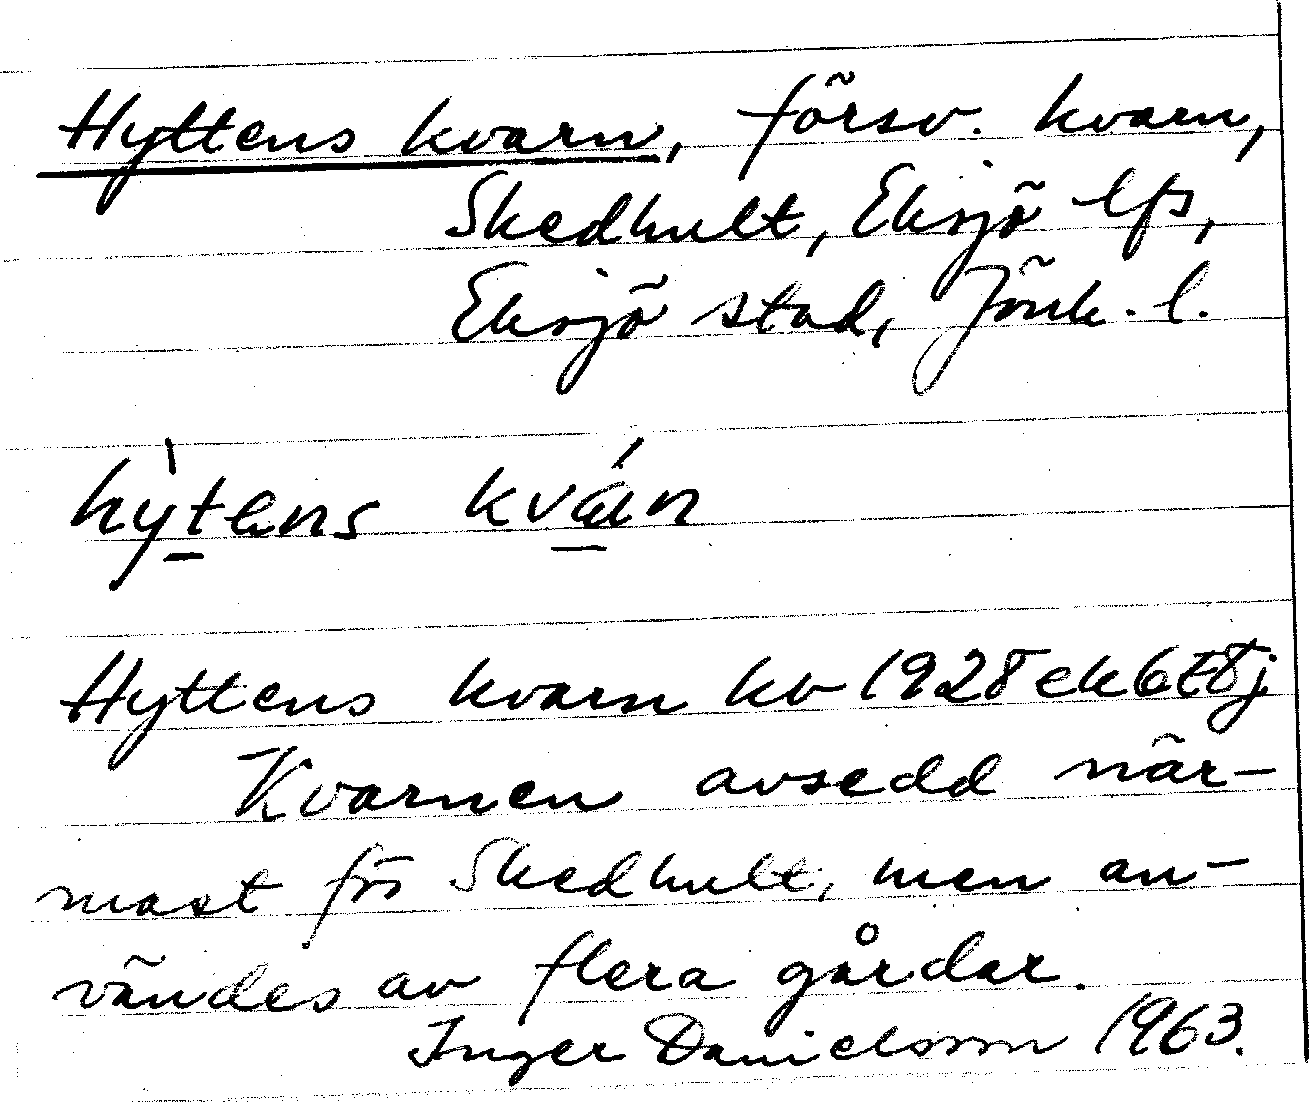 Hyttens kvarn, försv. kvarn,
Skedhult, Eksjö lfs,
Eksjö stad, Jönk. l.
hytens kván
Hyttens kvarn kv 1928 ek 6t8j
Kvarnen avsedd när-
mast för Skedhult, men an-
vändes av flera gårdar.
Inger Danielsson 1963.